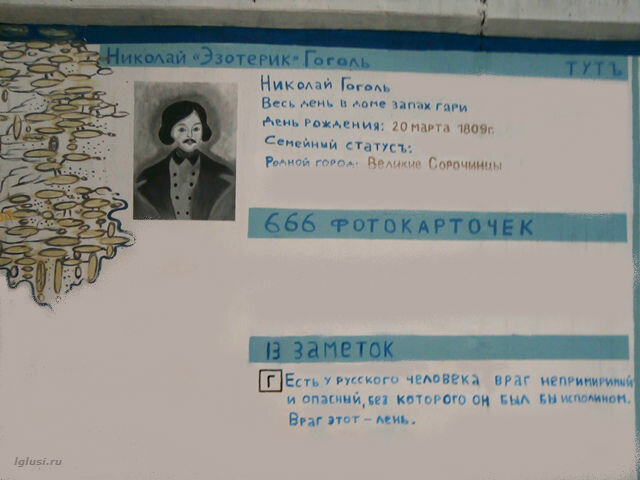 Николай «Эзотерик» Гоголь
ТУТЪ
Николай Гоголь
Весь день в доме запах гари
День рождения: 20 марта 1809г.
Семейный статусъ:
Родной город: Великие Сорочинцы
666 ФОТОКАРТОЧЕК
13 ЗАМЕТОК
Г Есть у русского человека враг непримиримый
и опасный, без которого он был бы исполином.
Враг этот – лень.
lglusi.ru